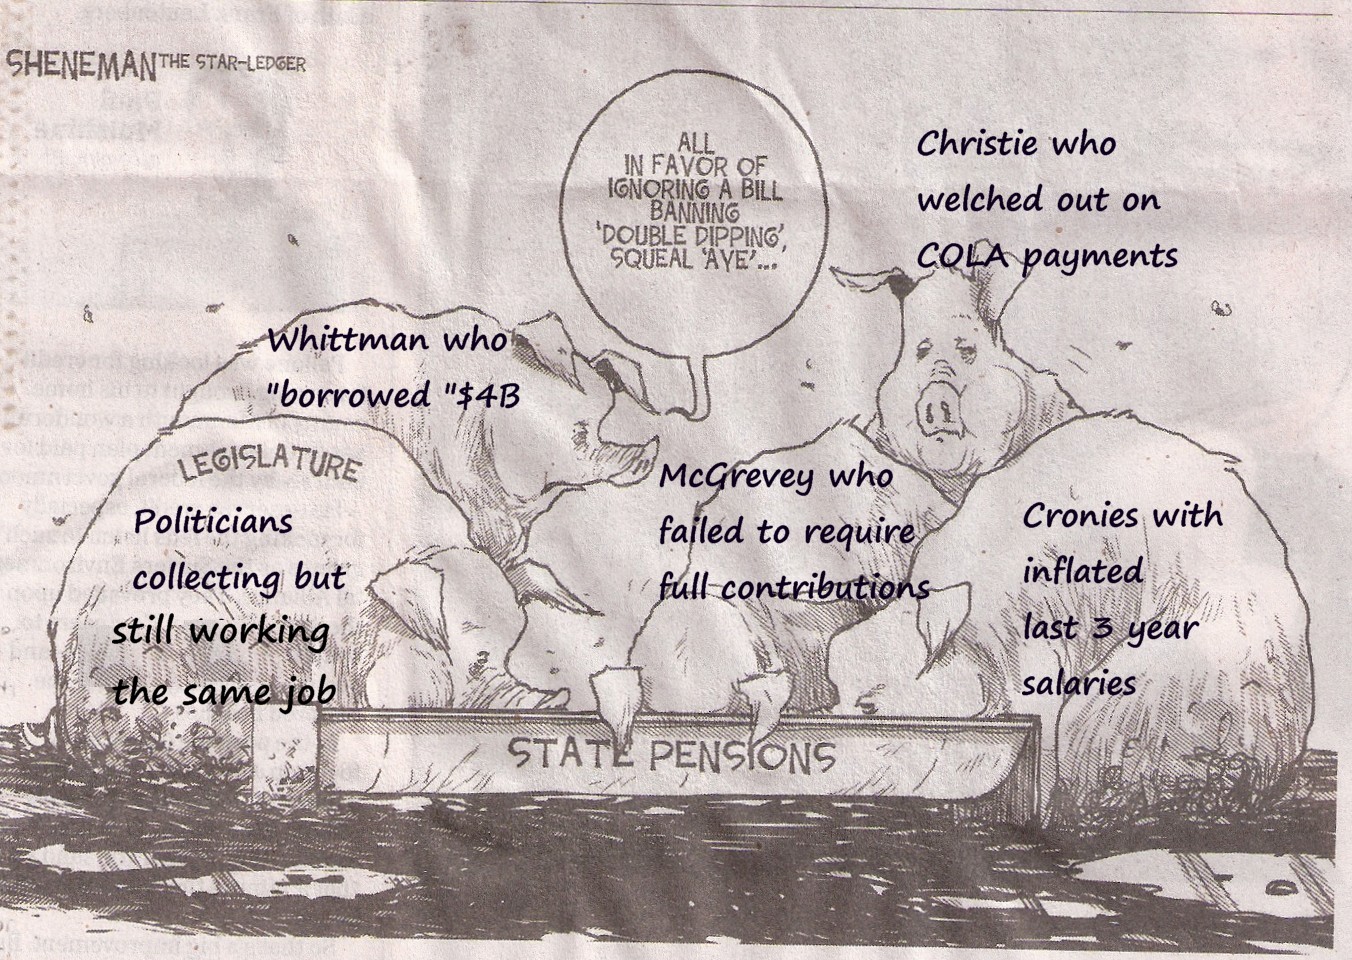 SHENEMAN THE STAR-LEDGER
ALL
IN FAVOR OF
IGNORING A BILL
BANNING
'DOUBLE DIPPING',
SQUEAL 'AYE'...
Christie who
welched out on
COLA payments
Whittman who
"borrowed "$4B
LEGISLATURE
Politicians
collecting but
still working
the same job
McGrevey who
failed to require
full contributions
Cronies with
inflated
last 3 year
salaries
STATE PENSIONS